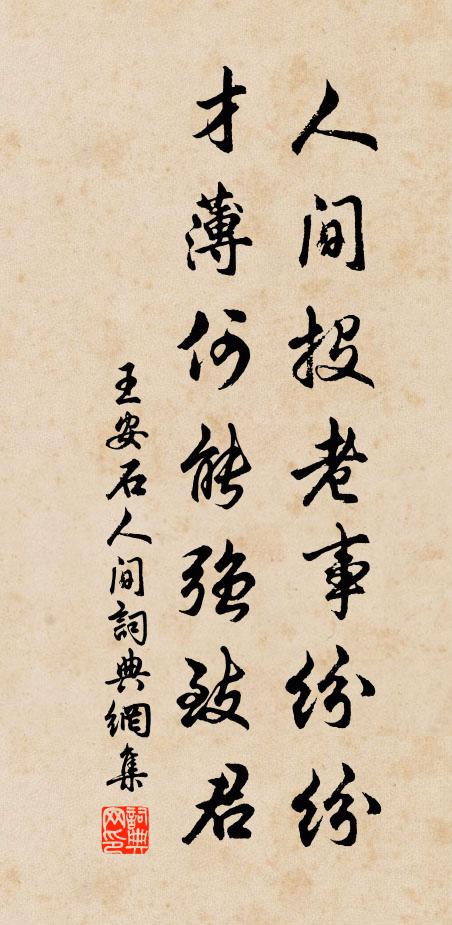 人间投老事纷纷
才薄何能强致君
王安石人间詞典網集
詞典网印